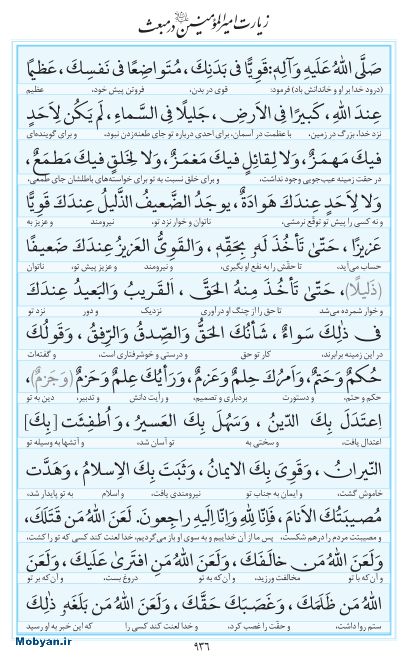 زیارت امیرالمؤمنین در مبعث
صَلَّى اللهُ عَلَيهِ وَآلِهِ: قَوِيًّا فى بَدَنِكَ، مُتَواضِعًا فى نَفسِكَ، عَظيمًا
(درود خدا بر او و خاندانش باد) فرمود: قوی در بدن، فروتن پیش خود، عظیم
عِندَ اللهِ، كَبيرًا فِى الاَرضِ، جَليلًا فِى السَّماءِ، لَم يَكُن لِاَحَدٍ
نزد خدا، بزرگ در زمین، با عظمت در آسمان، برای احدی درباره تو جای طعنه‌زدن نبود، و برای گوینده‌ای
فيكَ مَهمَزٌ، وَلا لِقائِلٍ فيكَ مَغمَزٌ، وَلا لِخَلقٍ فيكَ مَطمَعٌ،
در حقت زمینه عیب‌جویی وجود نداشت، و برای خلق نسبت به تو برای خواسته‌های باطلشان جای طمعی،
وَلا لِاَحَدٍ عِندَكَ هَوادَةٌ، يوجَدُ الضَّعيفُ الذَّليلُ عِندَكَ قَوِيًّا
و نه کسی را پیش تو توقع نرمشی، ناتوان و خوار نزد تو، نیرومند و عزیز به
عَزيزًا، حَتّىٰ تَأخُذَ لَهُ بِحَقِّهِ، وَالقَوِىُّ العَزيزُ عِندَكَ ضَعيفًا
حساب می‌آید، تا حقش را به نفع او بگیری، و نیرومند و عزیز پیش تو، ناتوان
(ذَليلًا)، حَتّىٰ تَأخُذَ مِنهُ الحَقَّ، اَلقَريبُ وَالبَعيدُ عِندَكَ
و خوار شمرده می‌شد تا حق را از چنگ او درآوری نزدیک و دور نزد تو
فى ذٰلِكَ سَواءٌ، شَأنُكَ الحَقُّ وَالصِّدقُ وَالرِّفقُ، وَقَولُكَ
در این زمینه برابرند، کار تو حق و درستی و خوشرفتاری است، و گفته‌ات
حُكمٌ وَحَتمٌ، وَاَمرُكَ حِلمٌ وَعَزمٌ، وَرَأيُكَ عِلمٌ وَحَزمٌ (وَجَزمٌ)،
حکم و حتم، و دستورت بردباری و تصمیم، و رأیت دانش و تدبیر، دین به تو
اِعتَدَلَ بِكَ الدّينُ، وَسَهُلَ بِكَ العَسيرُ، وَاُطفِئَت [بِكَ]
اعتدال یافت، و سختی به تو آسان شد، و آتشها به وسیله تو
النّيرانُ، وَقَوِىَ بِكَ الايمانُ، وَثَبَتَ بِكَ الاِسلامُ، وَهَدَّت
خاموش گشت، و ایمان به جناب تو نیرومندی یافت، و اسلام به تو پایدار شد،
مُصيبَتُكَ الاَنامَ، فَاِنّا لِلّٰهِ وَاِنّا اِلَيهِ راجِعونَ. لَعَنَ اللهُ مَن قَتَلَكَ،
و مصیبتت مردم را درهم شکست، پس ما از آن خداییم و به سوی او باز می‌گردیم، خدا لعنت کند کسی که تو را کشت،
وَلَعَنَ اللهُ مَن خالَفَكَ، وَلَعَنَ اللهُ مَنِ افتَرىٰ عَلَيكَ، وَلَعَنَ
و آن‌که با تو مخالفت ورزید، و آن‌که به تو دروغ بست، و آن‌که بر تو
اللهُ مَن ظَلَمَكَ، وَغَصَبَكَ حَقَّكَ، وَلَعَنَ اللهُ مَن بَلَغَهُ ذٰلِكَ
ستم روا داشت، و حقت را غصب کرد، و خدا لعنت کند کسی را که این خبر به او رسید
۹۳۶
Mobyan.ir